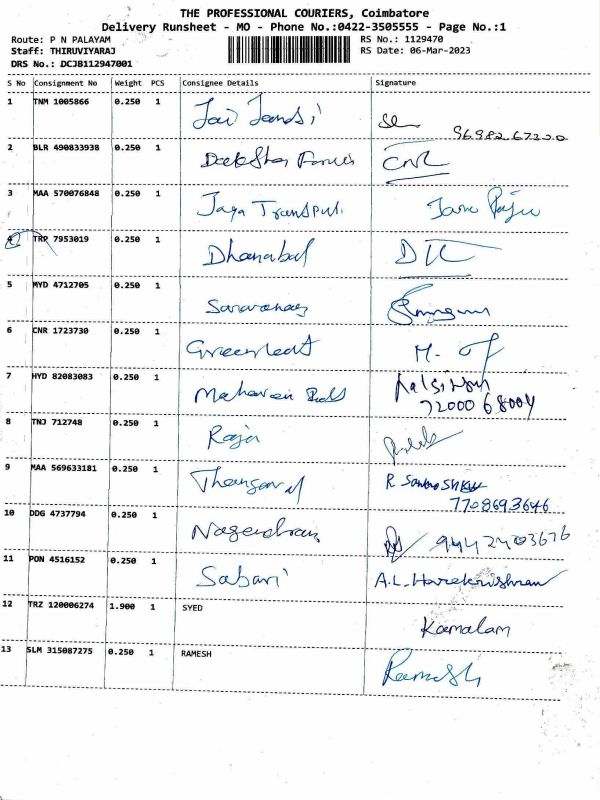 THE PROFESSIONAL COURIERS, Coimbatore
Delivery Runsheet - MO - Phone No.:0422-3505555 - Page No.:1
Route: P N PALAYAM RS No.: 1129470
Staff: THIRUVIYARAJ RS Date: 06-Mar-2023
DRS No.: DCJB112947001
S No Consignment No Weight PCS Consignee Details Signature
1 TNM 1005866 0.250 1
96982 67320
2 BLR 490833938 0.250 1 CNR
3 MAA 570076848 0.250 1 Jaya Transport
4 TRP 7953019 0.250 1 Dhanabal DK
5 MYD 4712705 0.250 1 Saravanan
6 CNR 1723730 0.250 1 Greenleaf
7 HYD 82083083 0.250 1 Mahaveer
72000 68004
8 TNJ 712748 0.250 1 Raja
9 MAA 569633181 0.250 1 Thangaraj R
7708693646
10 DDG 4737794 0.250 1 Nagendran 9442403676
11 PON 4516152 0.250 1 Sabari A.L. Harekrishnan
12 TRZ 120006274 1.900 1 SYED Kamalam
13 SLM 315087275 0.250 1 RAMESH Ramesh